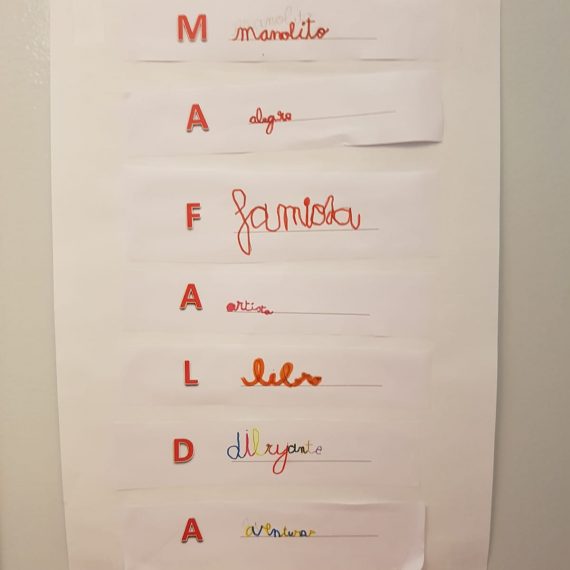 M manolito
A alegre
F famiosa
A artista
L lelo
D dilryante
A aventuras